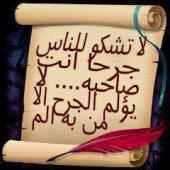 لا تشكو للناس
جرحا انت
صاحبه.... لا
يؤلم الجرح إلا
من به الم